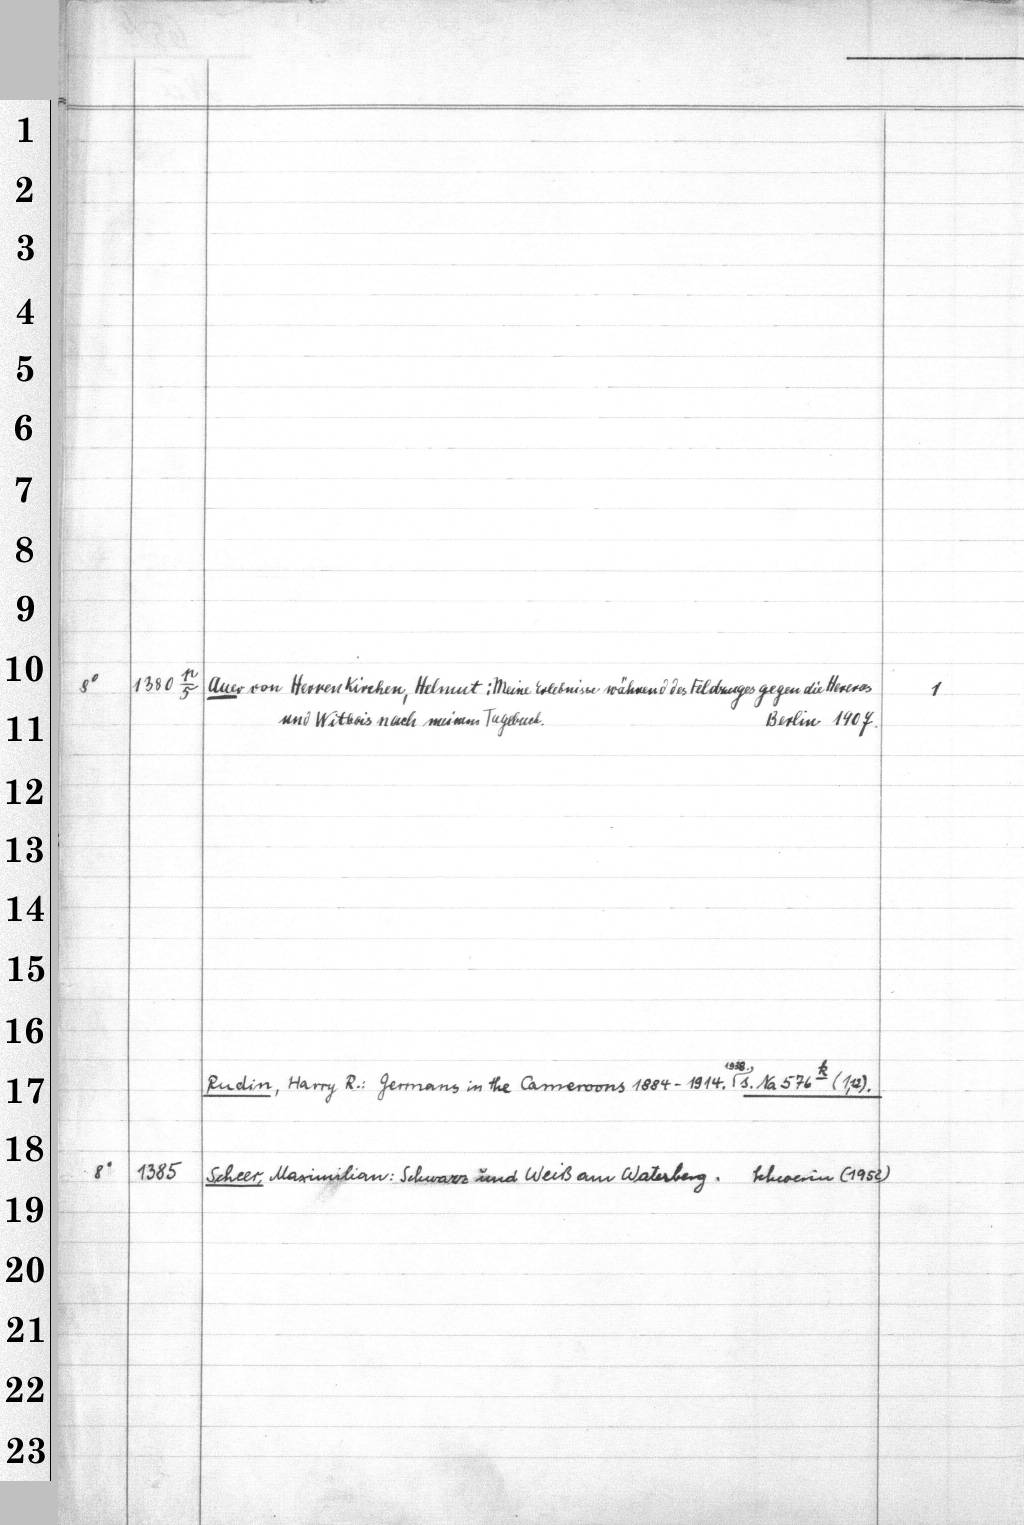 1
2
3
4
5
6
7
8
9
10
8° 1380 n/5 Auer von Herrenkirchen, Helmut: Meine Erlebnisse während des Feldzuges gegen die Hereros 1
und Witbois nach meinem Tagebuch. Berlin 1907.
11
12
13
14
15
16
1938.,
17 Rudin, Harry R.: Germans in the Cameroons 1884-1914. s. Na 576 k (1,12).
18
8° 1385 Scheer, Maximilian: Schwarz und Weiß am Waterberg. Schwerin (1952)
19
20
21
22
23